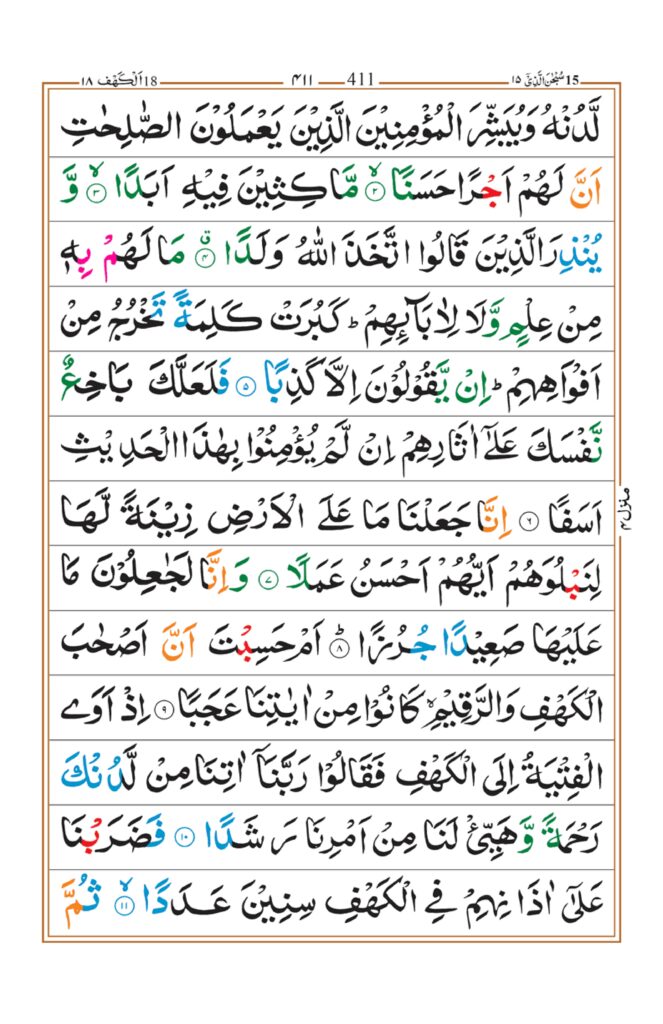 15 سُبْحٰنَ الَّذِیْۤ ۱۵ 411 ۴۱۱ 18 اَلْكَهْف ۱۸
لَّدُنْهُ وَیُبَشِّرَ الْمُؤْمِنِیْنَ الَّذِیْنَ یَعْمَلُوْنَ الصّٰلِحٰتِ
اَنَّ لَهُمْ اَجْرًا حَسَنًا ۙ﴿۲﴾ مَّاكِثِیْنَ فِیْهِ اَبَدًا ۙ﴿۳﴾ وَّ
یُنْذِرَ الَّذِیْنَ قَالُوا اتَّخَذَ اللّٰهُ وَلَدًا ۗ﴿۴﴾ مَا لَهُمْ بِهٖ
مِنْ عِلْمٍ وَّلَا لِاٰبَآىِٕهِمْ ؕ كَبُرَتْ كَلِمَةً تَخْرُجُ مِنْ
اَفْوَاهِهِمْ ؕ اِنْ یَّقُوْلُوْنَ اِلَّا كَذِبًا ﴿۵﴾ فَلَعَلَّكَ بَاخِعٌ
نَّفْسَكَ عَلٰۤی اٰثَارِهِمْ اِنْ لَّمْ یُؤْمِنُوْا بِهٰذَا الْحَدِیْثِ
اَسَفًا ﴿۶﴾ اِنَّا جَعَلْنَا مَا عَلَی الْاَرْضِ زِیْنَةً لَّهَا
لِنَبْلُوَهُمْ اَیُّهُمْ اَحْسَنُ عَمَلًا ﴿۷﴾ وَاِنَّا لَجٰعِلُوْنَ مَا
عَلَیْهَا صَعِیْدًا جُرُزًا ؕ﴿۸﴾ اَمْ حَسِبْتَ اَنَّ اَصْحٰبَ
الْكَهْفِ وَالرَّقِیْمِ ۙ كَانُوْا مِنْ اٰیٰتِنَا عَجَبًا ﴿۹﴾ اِذْ اَوَی
الْفِتْیَةُ اِلَی الْكَهْفِ فَقَالُوْا رَبَّنَاۤ اٰتِنَا مِنْ لَّدُنْكَ
رَحْمَةً وَّهَیِّئْ لَنَا مِنْ اَمْرِنَا رَشَدًا ﴿۱۰﴾ فَضَرَبْنَا
عَلٰۤی اٰذَانِهِمْ فِی الْكَهْفِ سِنِیْنَ عَدَدًا ۙ﴿۱۱﴾ ثُمَّ
منزل ۴